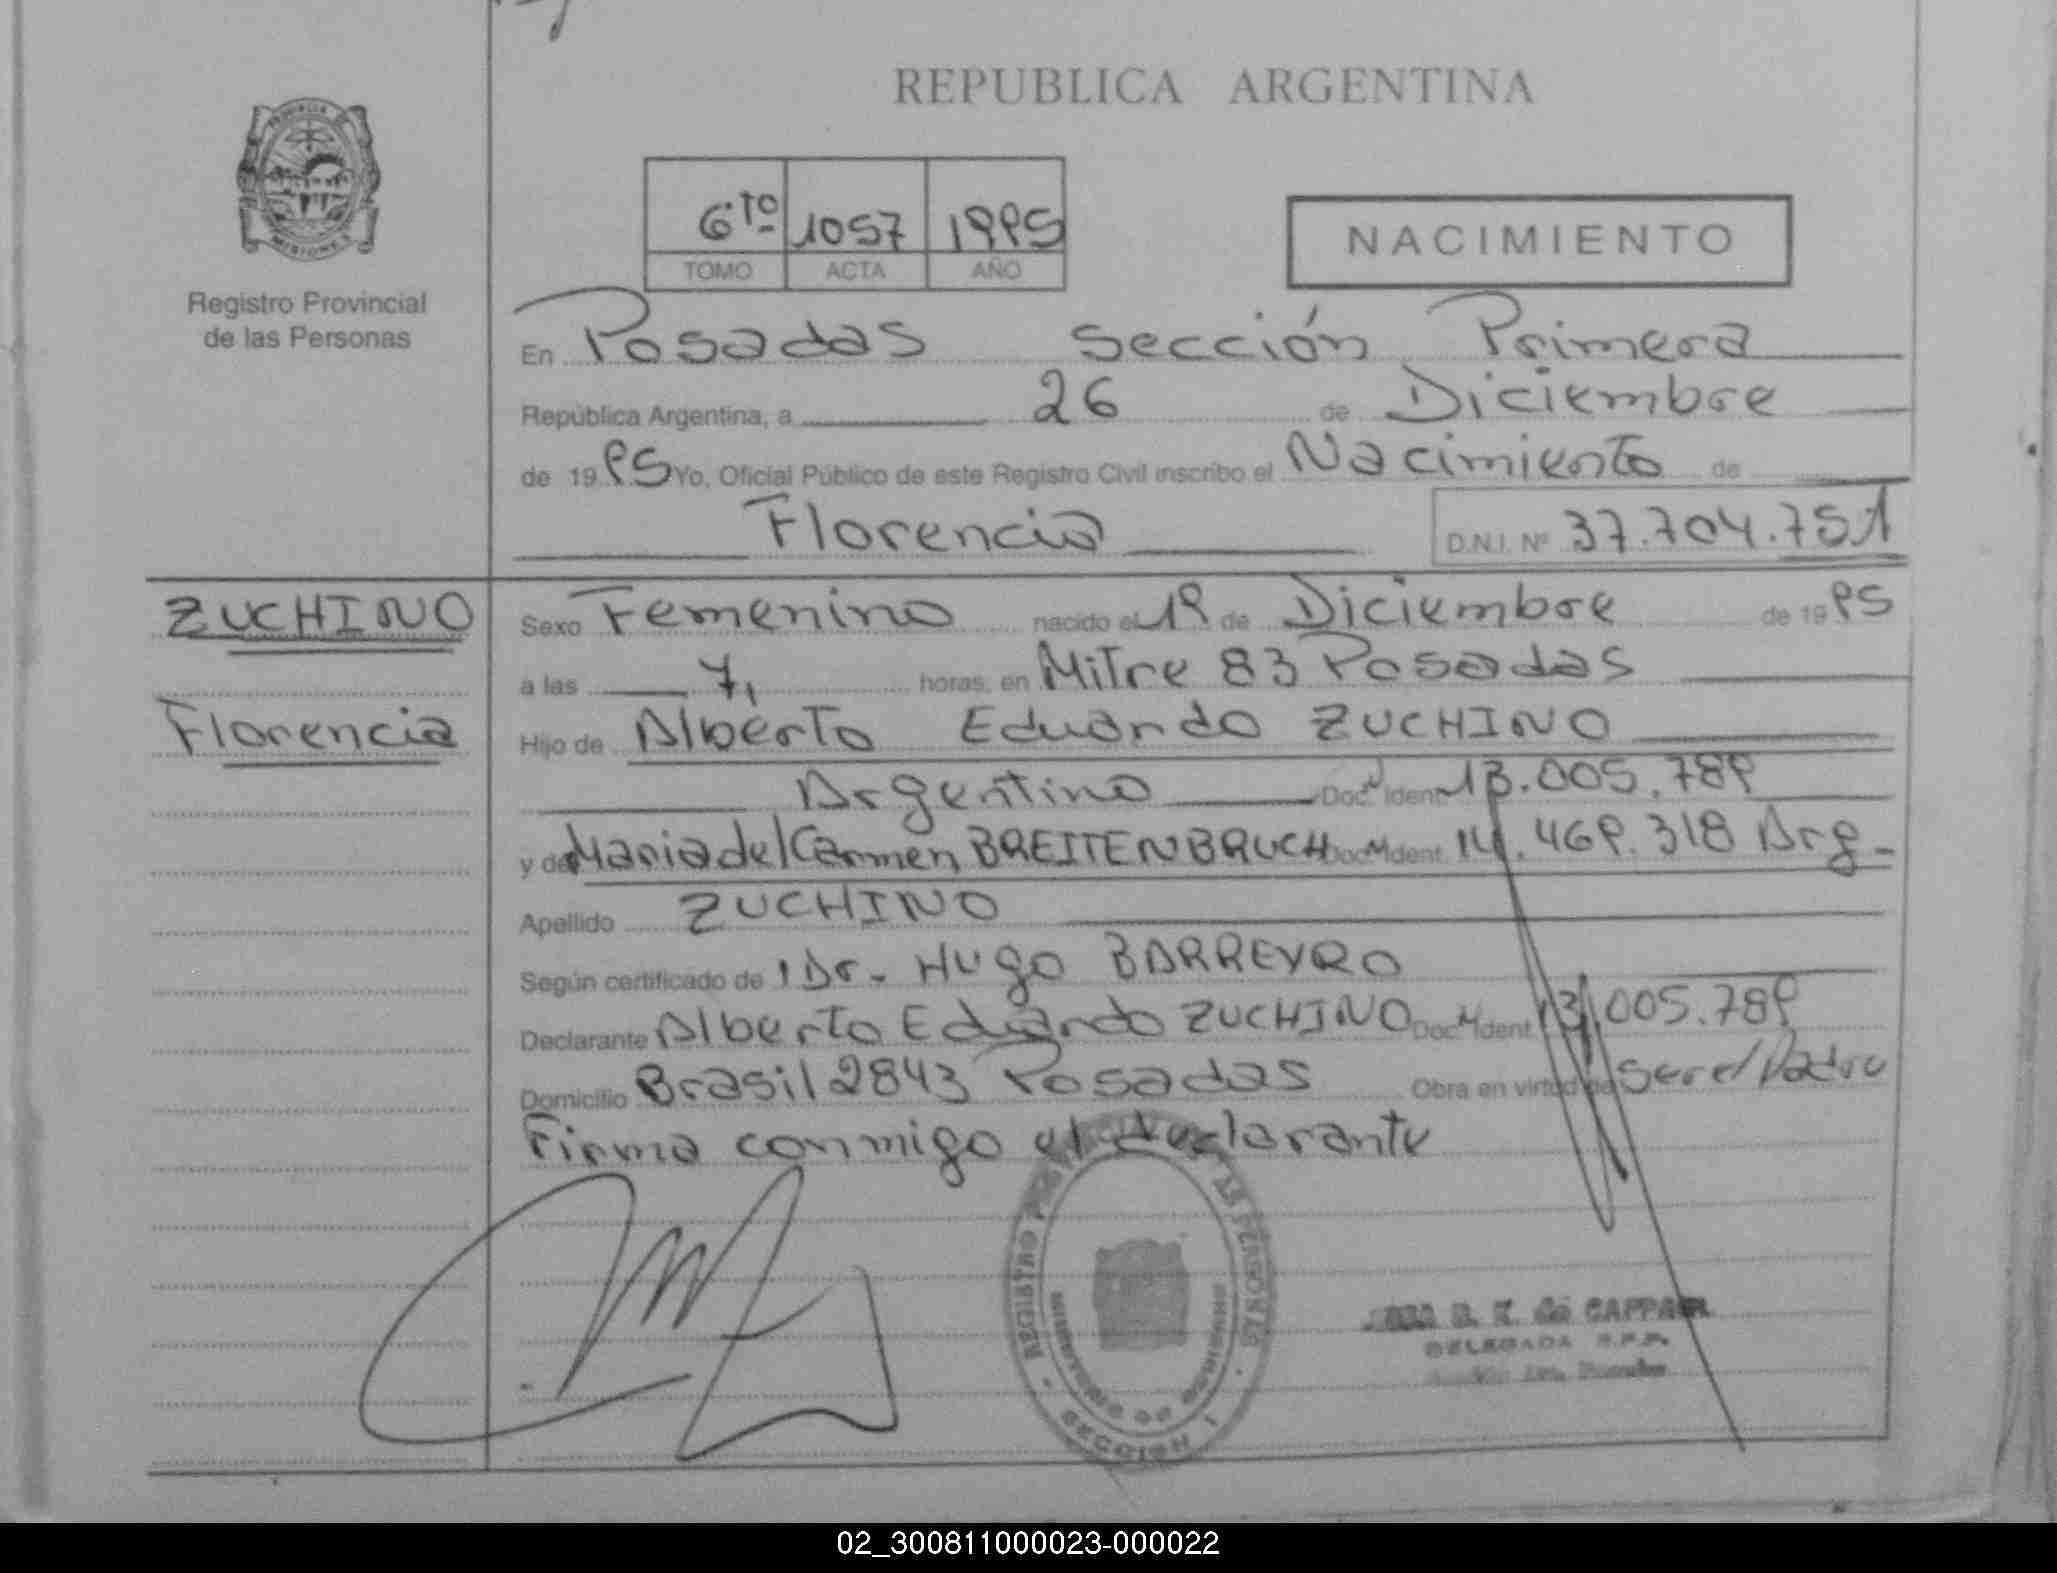 REPUBLICA ARGENTINA
PROVINCIA DE
MISIONES
Registro Provincial
de las Personas
6to 1057 1995
TOMO ACTA AÑO
NACIMIENTO
En Posadas Sección Primera
República Argentina, a 26 de Diciembre
de 1995 Yo, Oficial Público de este Registro Civil inscribo el Nacimiento de
Florencia D.N.I. Nº 37.704.751
ZUCHINO
Florencia
Sexo Femenino nacido el 19 de Diciembre de 1995
a las 7, horas, en Mitre 83 Posadas
Hijo de Alberto Eduardo ZUCHINO
Argentino Doc. N Ident. 13.005.789
y de Maria del Carmen BREITENBRUCH Doc. N Ident. 14.469.318 Arg-
Apellido ZUCHINO
Según certificado de Dr. Hugo BARREYRO
Declarante Alberto Eduardo ZUCHINO Doc. N Ident. 13.005.789
Domicilio Brasil 2843 Posadas Obra en virtud de Ser el Padre
Firma conmigo el declarante
REGISTRO DE LAS PERSONAS
MINISTERIO DE GOBIERNO
SECCION 1
DELEGADA R.P.P.
02_300811000023-000022